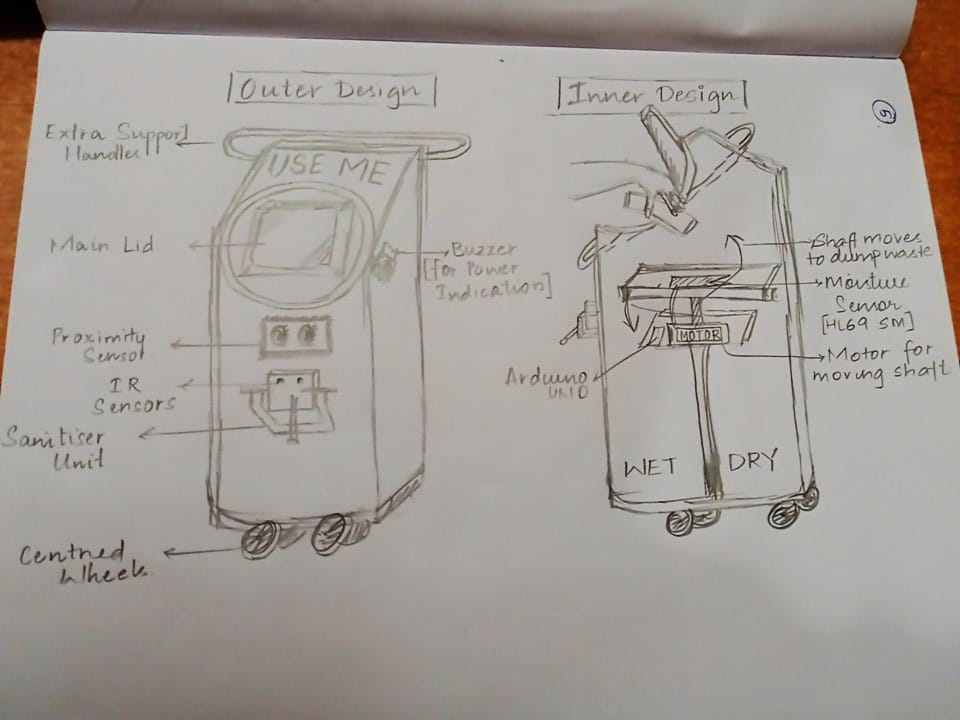 Outer Design
Extra Support
Handles
USE ME
Main Lid
Buzzer
[for Power
Indication]
Proximity
Sensor
IR
Sensors
Sanitiser
Unit
Centred
Wheels
Inner Design
5
Shaft moves
to dump waste
Moisture
Sensor
[HL69 SM]
MOTOR
Motor for
moving shaft
Arduino
UNO
WET
DRY